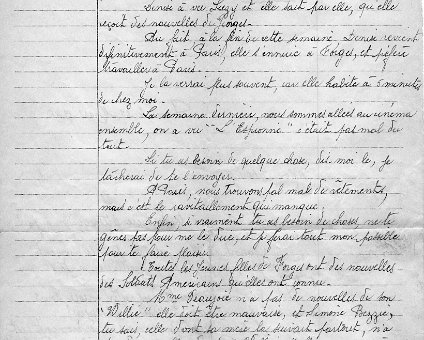 Denise a vu Suzy et elle sait par elle, qu'elle
reçoit des nouvelles de Forges.
Du fait à la fin de cette semaine Denise revient
définitivement à Paris, elle s'ennuie à Forges, et préfère
travailler à Paris.
Je la verrai plus souvent, car elle habite à 5 minutes
de chez moi.
La semaine dernière, nous sommes allées au cinéma
ensemble, on a vu "L'Espionne" c'était pas mal du
tout.
Si tu as besoin de quelque chose, dis moi le, je
tâcherai de te l'envoyer.
A Paris, nous trouvons pal mal de vêtements,
mais c'est le ravitaillement qui manque.
Enfin, si vraiment tu as besoin de choses, ne te
gênes pas pour me le dire, et je ferai tout mon possible
pour te faire plaisir.
Toutes les jeunes filles de Forges ont des nouvelles
des Soldats Américains qu'elles ont connu.
Mme n'a pas de nouvelles de son
"Willie" elle doit être mauvaise, et Simone
tu sais, celle dont sa mère la suivait partout, n'a